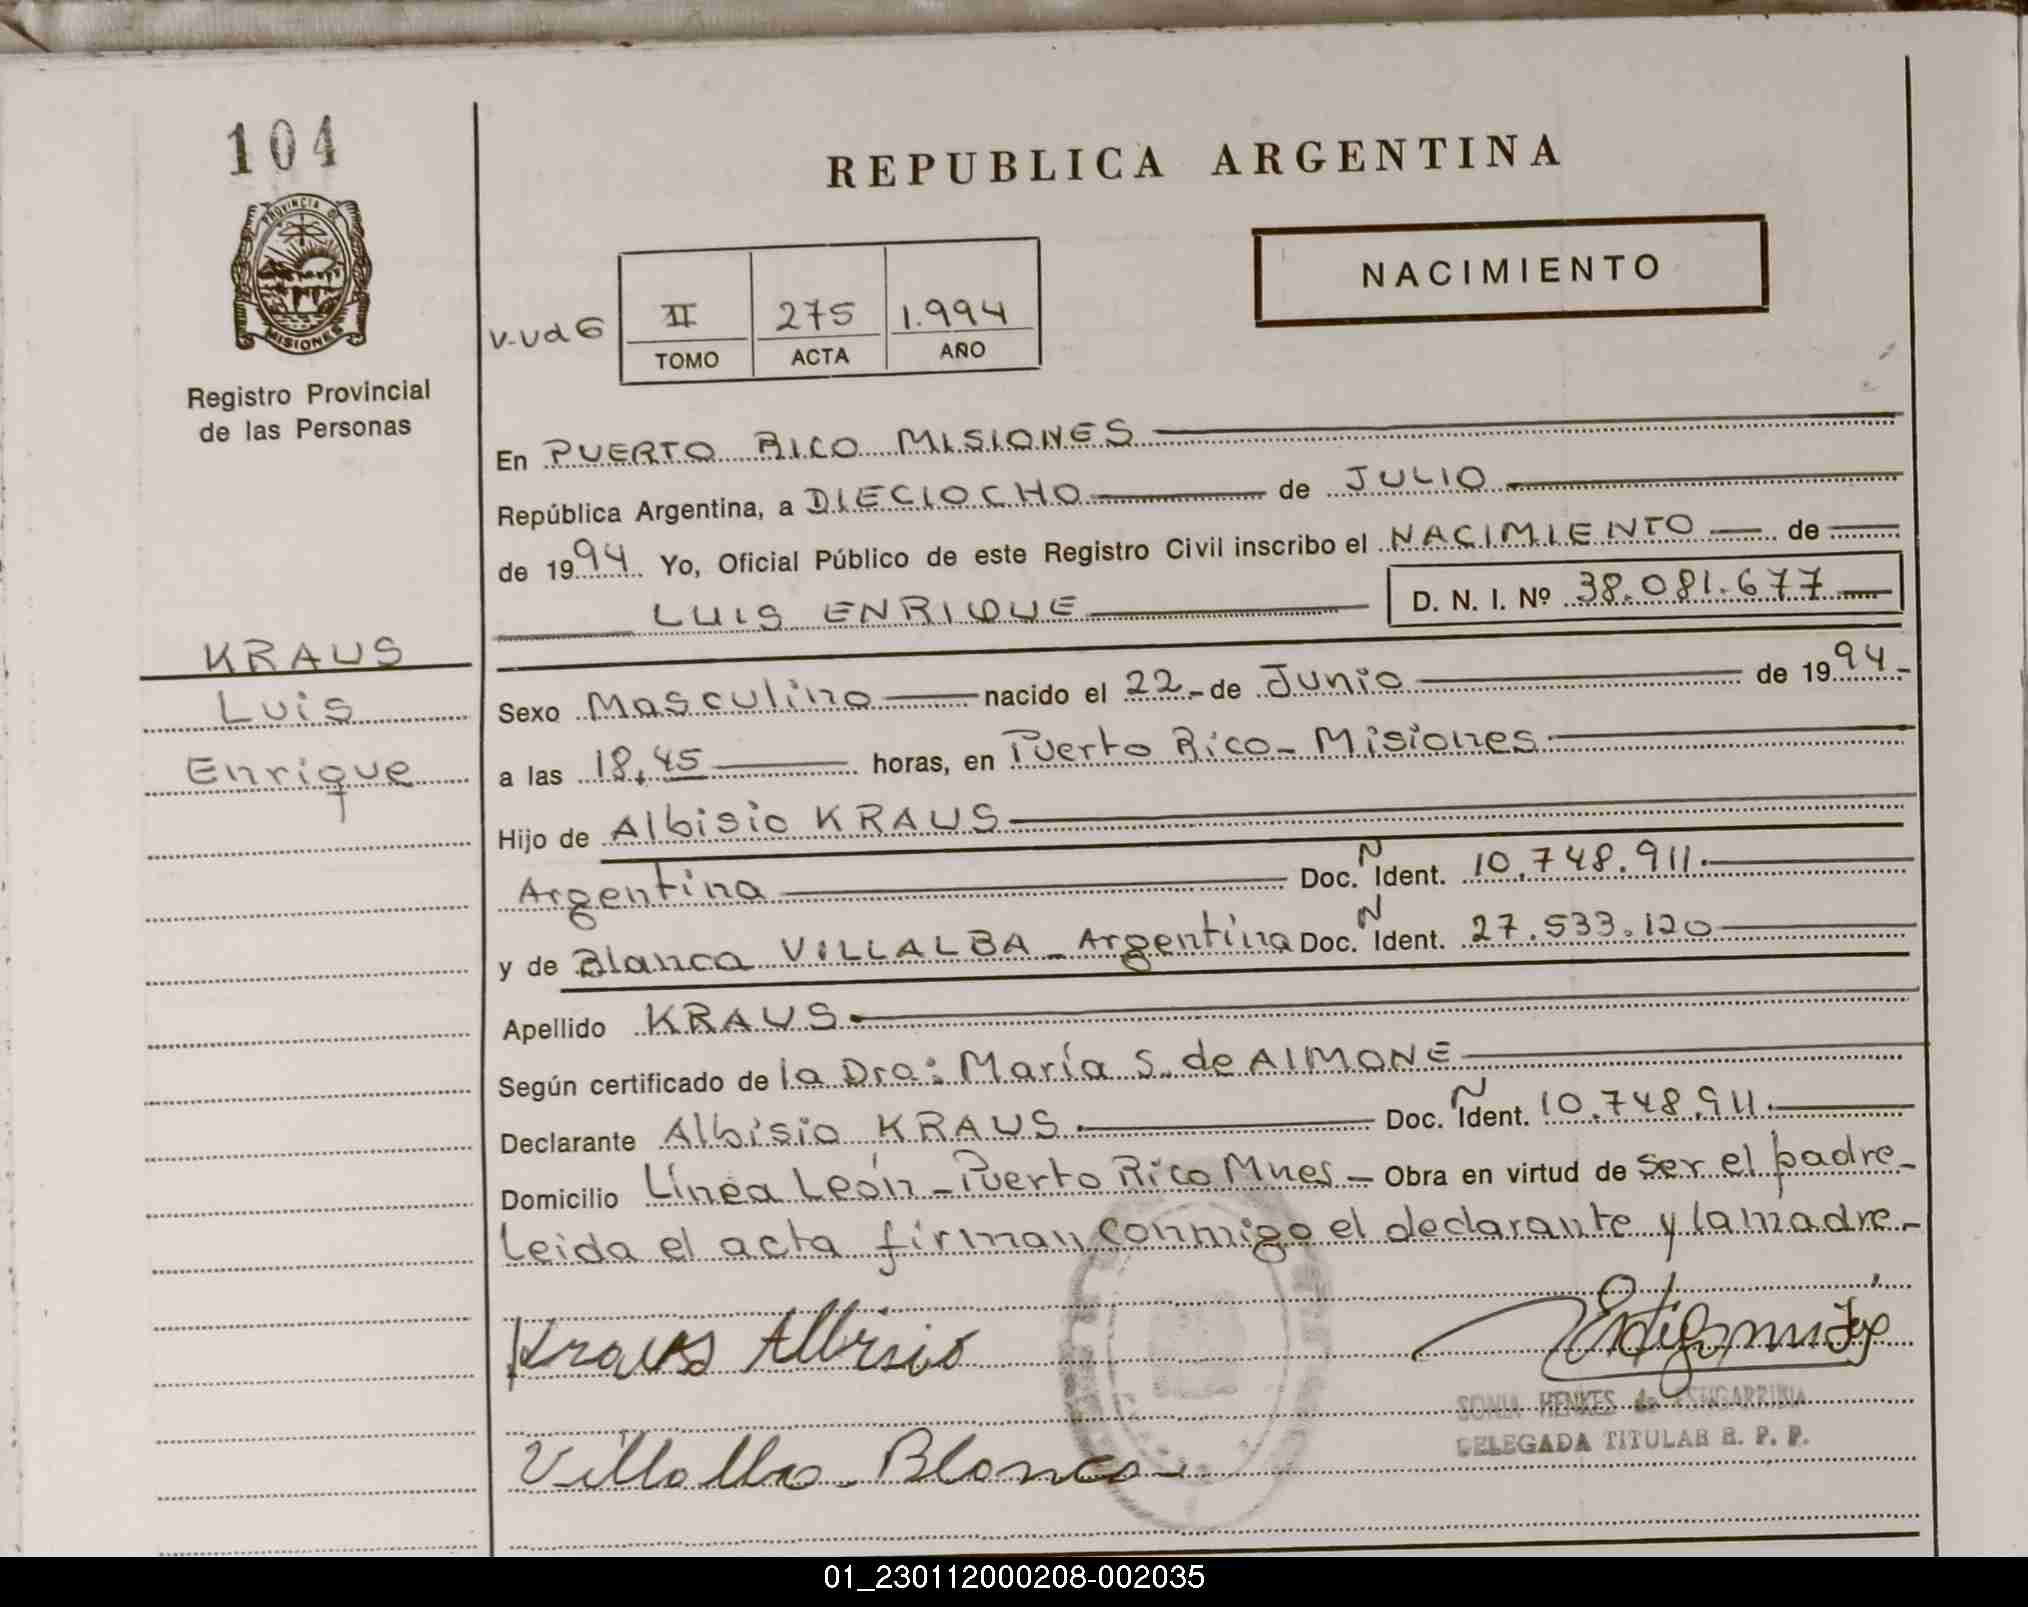 104
PROVINCIA DE
MISIONES
Registro Provincial
de las Personas
KRAUS
Luis
Enrique
REPUBLICA ARGENTINA
NACIMIENTO
II 275 1.994
TOMO ACTA AÑO
En PUERTO RICO MISIONES
República Argentina, a DIECIOCHO de JULIO
de 1994. Yo, Oficial Público de este Registro Civil inscribo el NACIMIENTO de
LUIS ENRIQUE D. N. I. Nº 38.081.677
Sexo Masculino nacido el 22 de Junio de 1994
a las 18,45 horas, en Puerto Rico - Misiones
Hijo de Albisio KRAUS
Argentina Doc. Ñ Ident. 10.748.911.
y de Blanca VILLALBA - Argentina Doc. Ñ Ident. 27.533.120
Apellido KRAUS
Según certificado de la Dra: María S. de AIMONE
Declarante Albisio KRAUS. Doc. Ñ Ident. 10.748.911.
Domicilio Línea León - Puerto Rico Mnes - Obra en virtud de ser el padre -
Leida el acta firman conmigo el declarante y la madre -
Kraus Albisio
SONIA HENKES de
DELEGADA TITULAR R. P. P.
Villalba Blanca
01_230112000208-002035